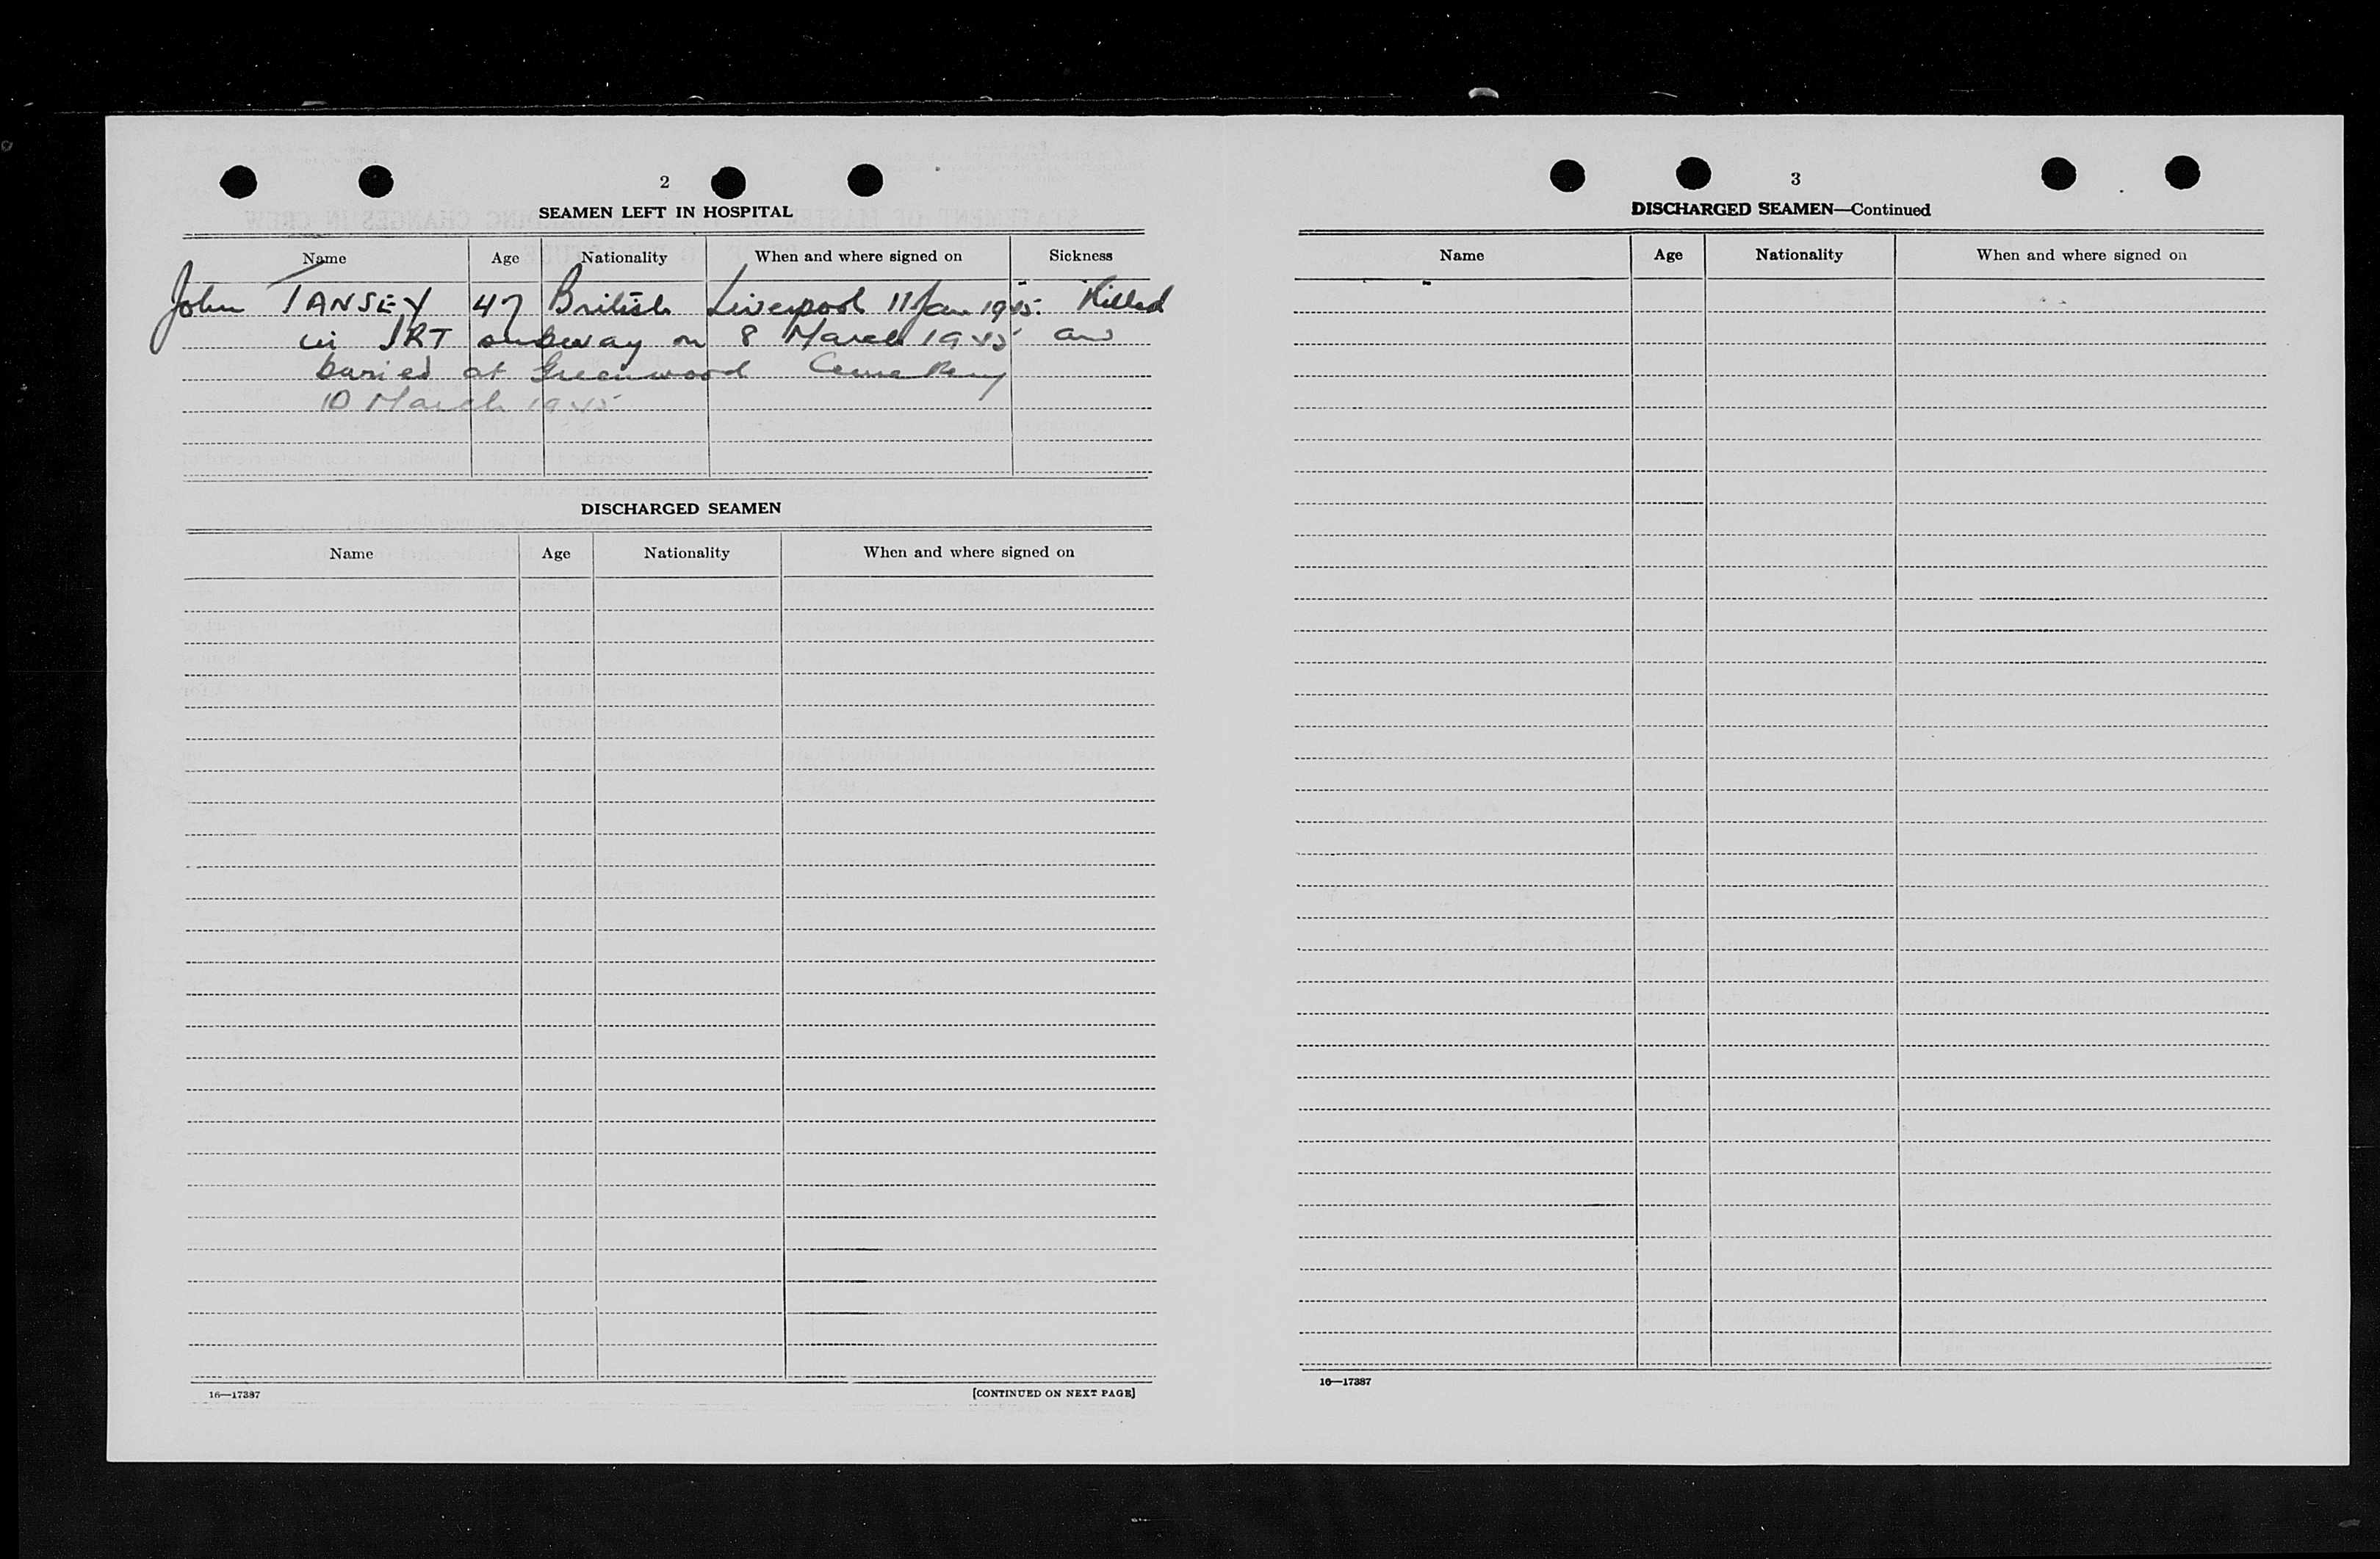 2
SEAMEN LEFT IN HOSPITAL
Name Age Nationality When and where signed on Sickness
John TANSEY 47 British Liverpool 11 Jan 1945. Killed
in IRT subway on 8 March 1945 and
buried at Greenwood Cemetery
10 March 1945
DISCHARGED SEAMEN
Name Age Nationality When and where signed on
16—17387
[CONTINUED ON NEXT PAGE]
3
DISCHARGED SEAMEN—Continued
Name Age Nationality When and where signed on
16—17387